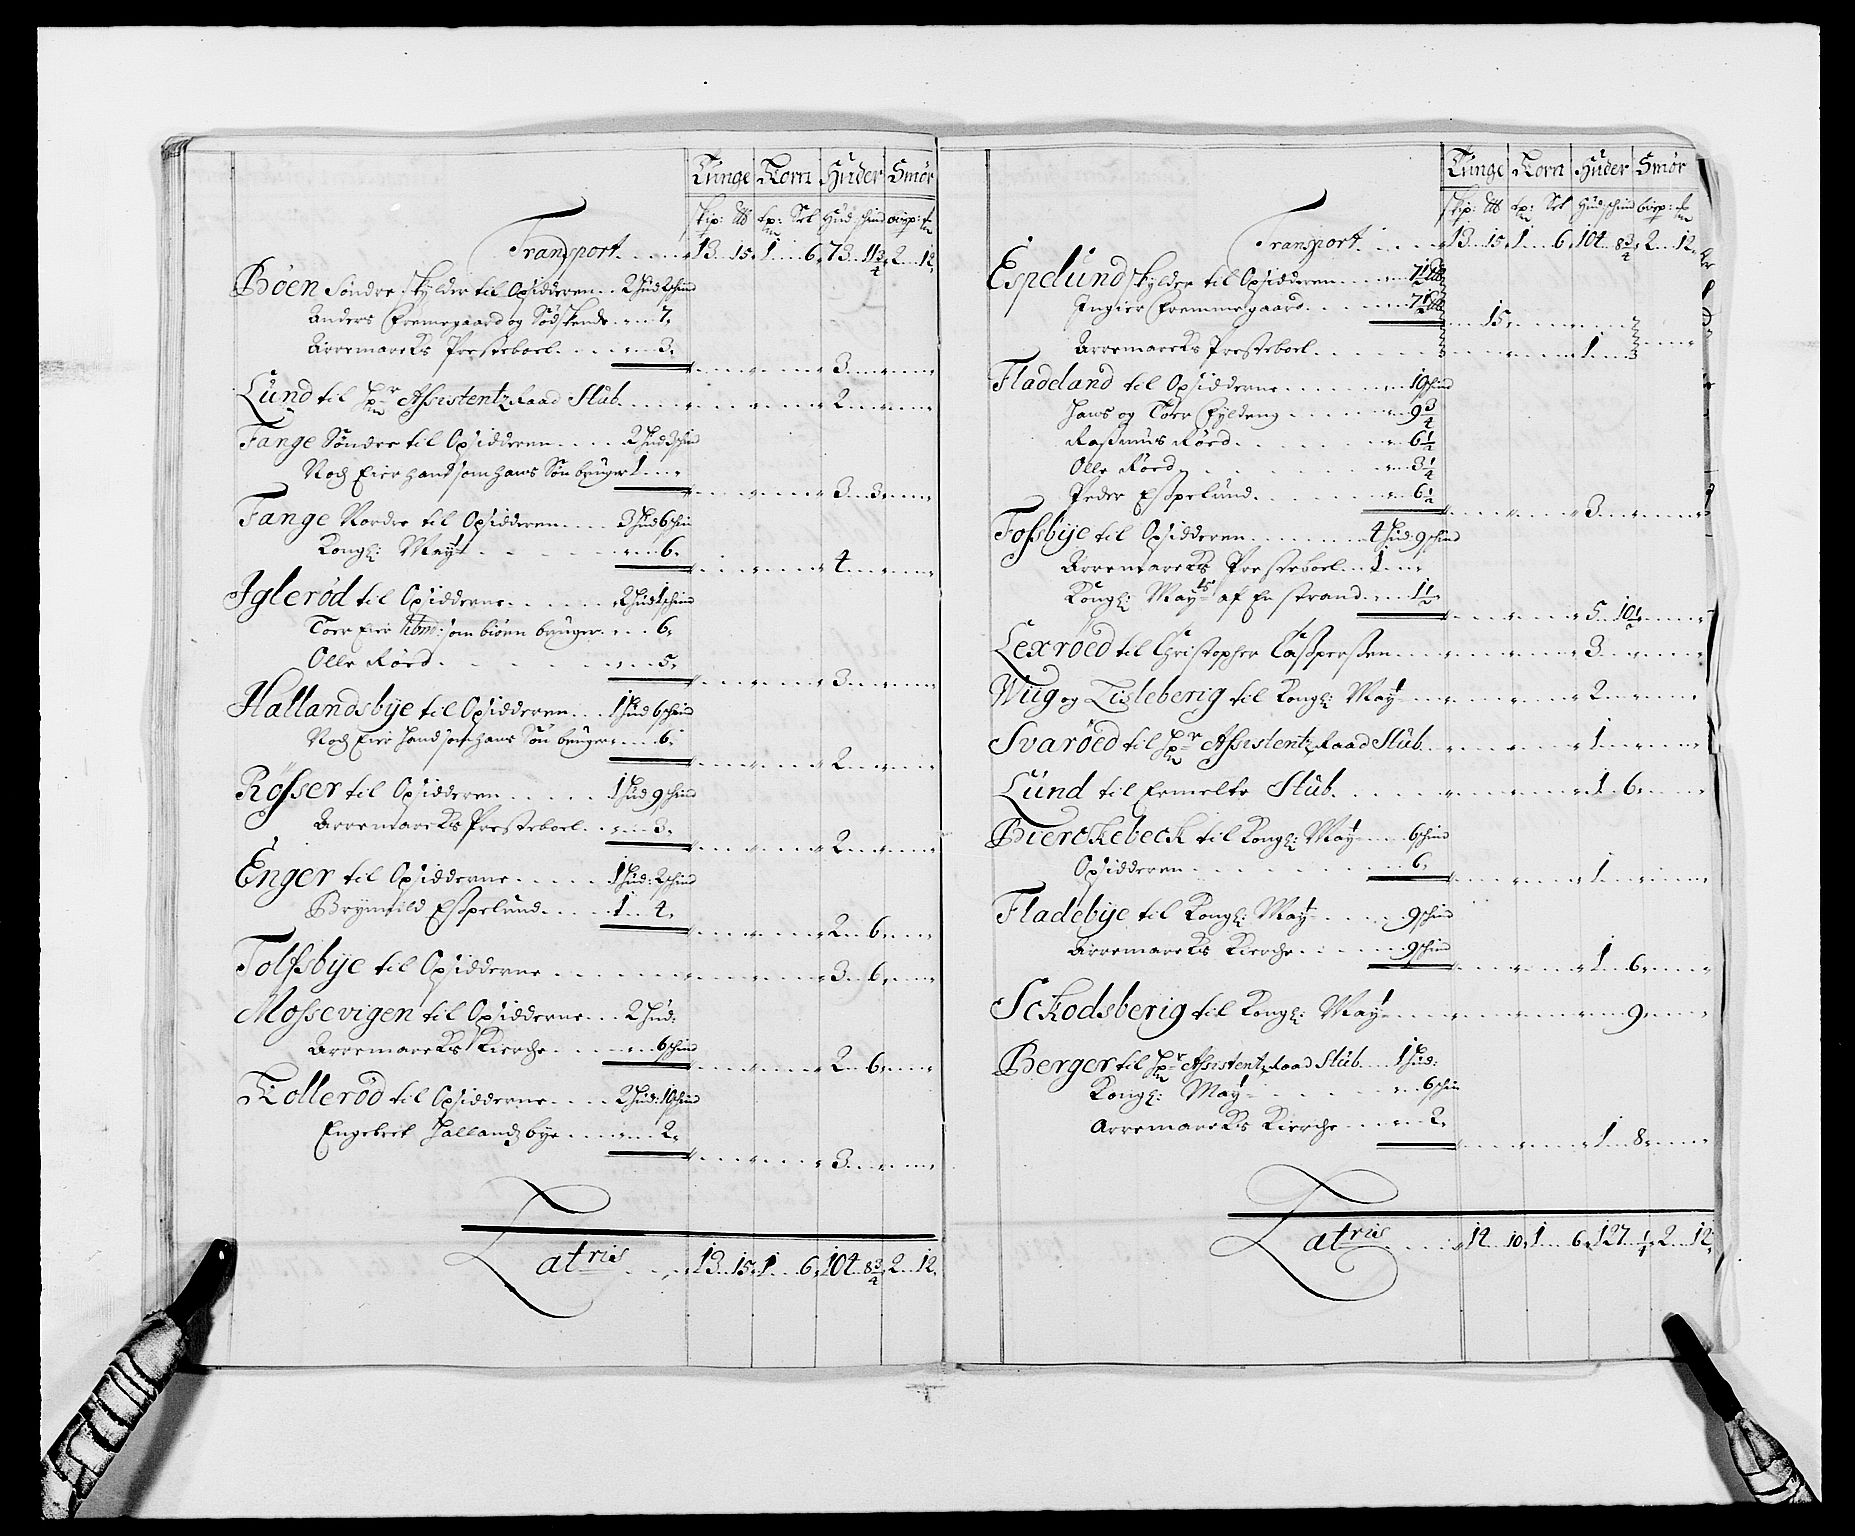 Tunge Korn Huder Smør
skip: ℔ tp: Set Hud schind bisp:
Transport . . . . 13 . . 15 . 1 . . . 6 . 73 . 11 3/4 . 2 . . 12 .
Böen Søndre skylder til Opsidderen . . 2 Hud 2 schind
Anders Fremegaard og Södskende . . „ . . 7 .
Arremarcks Presteboel . . . . „ . . 3 .
3
Lund til Hr Assistentz Raad Stub . . . . 2
Fange Sønder til Opsidderen . . . . 2 Hud 3 schind
Noch Eier hand som hans Søn bruger 1 . . „
3 . . 3
Fange Nordre til Opsidderen . . . . 3 Hud 6 schin
Kongl: Mayt . . . . . . „ . . 6 .
4
Iglerød til Opsidderne . . . . . . 2 Hud 1 schind
Toer Eier som biörn bruger . . „ . . 6 .
Olle Röed . . . . . . . . „ . . 5 .
3
Hallandsbÿe til Opsidderen . . 1 Hud 6 schind
Noch Eier Hand som hans Søn bruger . „ . . 6
2
Rösser til Opsidderen . . . . . 1 Hud 9 schind
Arremarcks Presteboel . . „ . . 3 .
2
Enger til Opsidderne . . . . . 1 Hud: 2 schind
Brynnild Espelund . . . . 1 . . 4 .
2 . . 6
Tolfsbÿe til Opsidderne . . . . . . . 3 . . 6
Mossevigen til Opsidderne . . . 2 Hud:
Arremarcks Kierche . . . . „ . . 6 schind
2 . . 6
Kollerød til Opsidderne . . . . 2 Hud: 10 schind
Engebret Hallandzbye . . . „ . . 2 .
3
Latris . . . 13 . . 15 . 1 . . . 6 . 104 . 8 3/4 . 2 . . 12 .
Tunge Korn Huder Smør
skip: ℔ tp: Set Hud schind bisp:
Transport . . . . 13 . . 15 . 1 . . . 6 . 104 . 8 3/4 . 2 . . 12 .
Espelund skylder til Opsidderen . . . . 7 1/2 ℔
Ingier Fremmegaard . . . . . . 7 1/2 ℔
15
Arremarcks Presteboel . . . . . . 1
Fladeland til Opsidderne . . . . . . 10 schind
Hans og Toer Fylling . . . . . . 9 3/4
Rasmus Röed . . . . . . . . 6 1/2
Olle Röed . . . . . . . . . 3 1/4
Peder Espelund . . . . . . . 6 1/2
3
Fossbÿe til Opsidderen . . . . . . 4 Hud: 9 schind
Arremarcks Presteboel . . 1 . . „
Kongl: Mayts af Enstrand . . „ . . 1 1/2
5 . 10 1/2
Lexröed til Christopher Casperssen . . . . 3
Wug og Tisleberig til Kongl: May . . . . 2
Svaröed til Hr Assistentz Raad Stub . . . . 1
Lund til Ermelte Stub . . . . . . 1 . . 6
Bierckebeck til Kongl: May . . . 6 schind
Opsidderen . . . . . . . . . 6 .
1
Fladebÿe til Kongl: May . . . . 9 schind
Arremarcks Kierche . . . . . 9 schind
1 . . 6
Sckodsberig til Kongl: May . . . . . . 9
Berger til Hr Assistentz Raad Stub . . . 1 Hud:
Kongl: May . . . . . . . „ . . 6 schin
Arremarcks Kierche . . . „ . . 2 .
1 . . 8
Latris . . . . 14 . . 10 . 1 . . . 6 . 127 . 1/4 . 2 . . 12